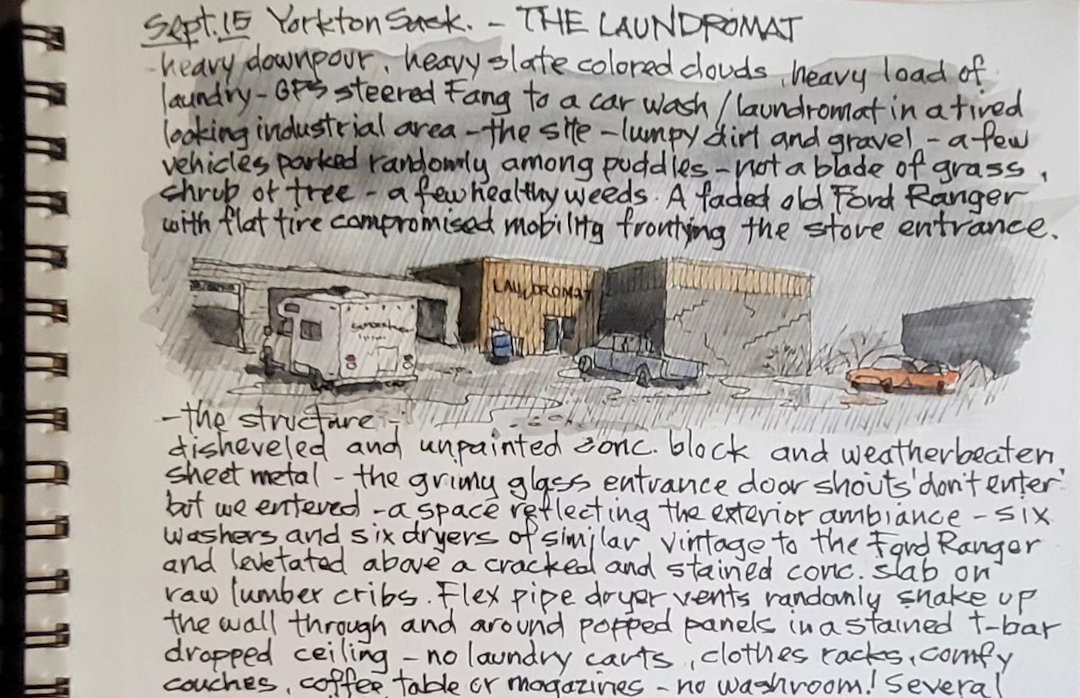 Sept. 15 Yorkton Sask. - THE LAUNDROMAT
- heavy downpour, heavy slate colored clouds, heavy load of
laundry - GPS steered Fang to a car wash / laundromat in a tired
looking industrial area - the site - lumpy dirt and gravel - a few
vehicles parked randomly among puddles - not a blade of grass,
shrub or tree - a few healthy weeds. A faded old Ford Ranger
with flat tire compromised mobility fronting the store entrance.
LAUNDROMAT
- the structure -
disheveled and unpainted conc. block and weatherbeaten
sheet metal - the grimy glass entrance door shouts 'don't enter'
but we entered - a space reflecting the exterior ambiance - six
washers and six dryers of similar vintage to the Ford Ranger
and levetated above a cracked and stained conc. slab on
raw lumber cribs. Flex pipe dryer vents randomly snake up
the wall through and around popped panels in a stained t-bar
dropped ceiling - no laundry carts, clothes racks, comfy
couches, coffee table or magazines - no washroom! Several